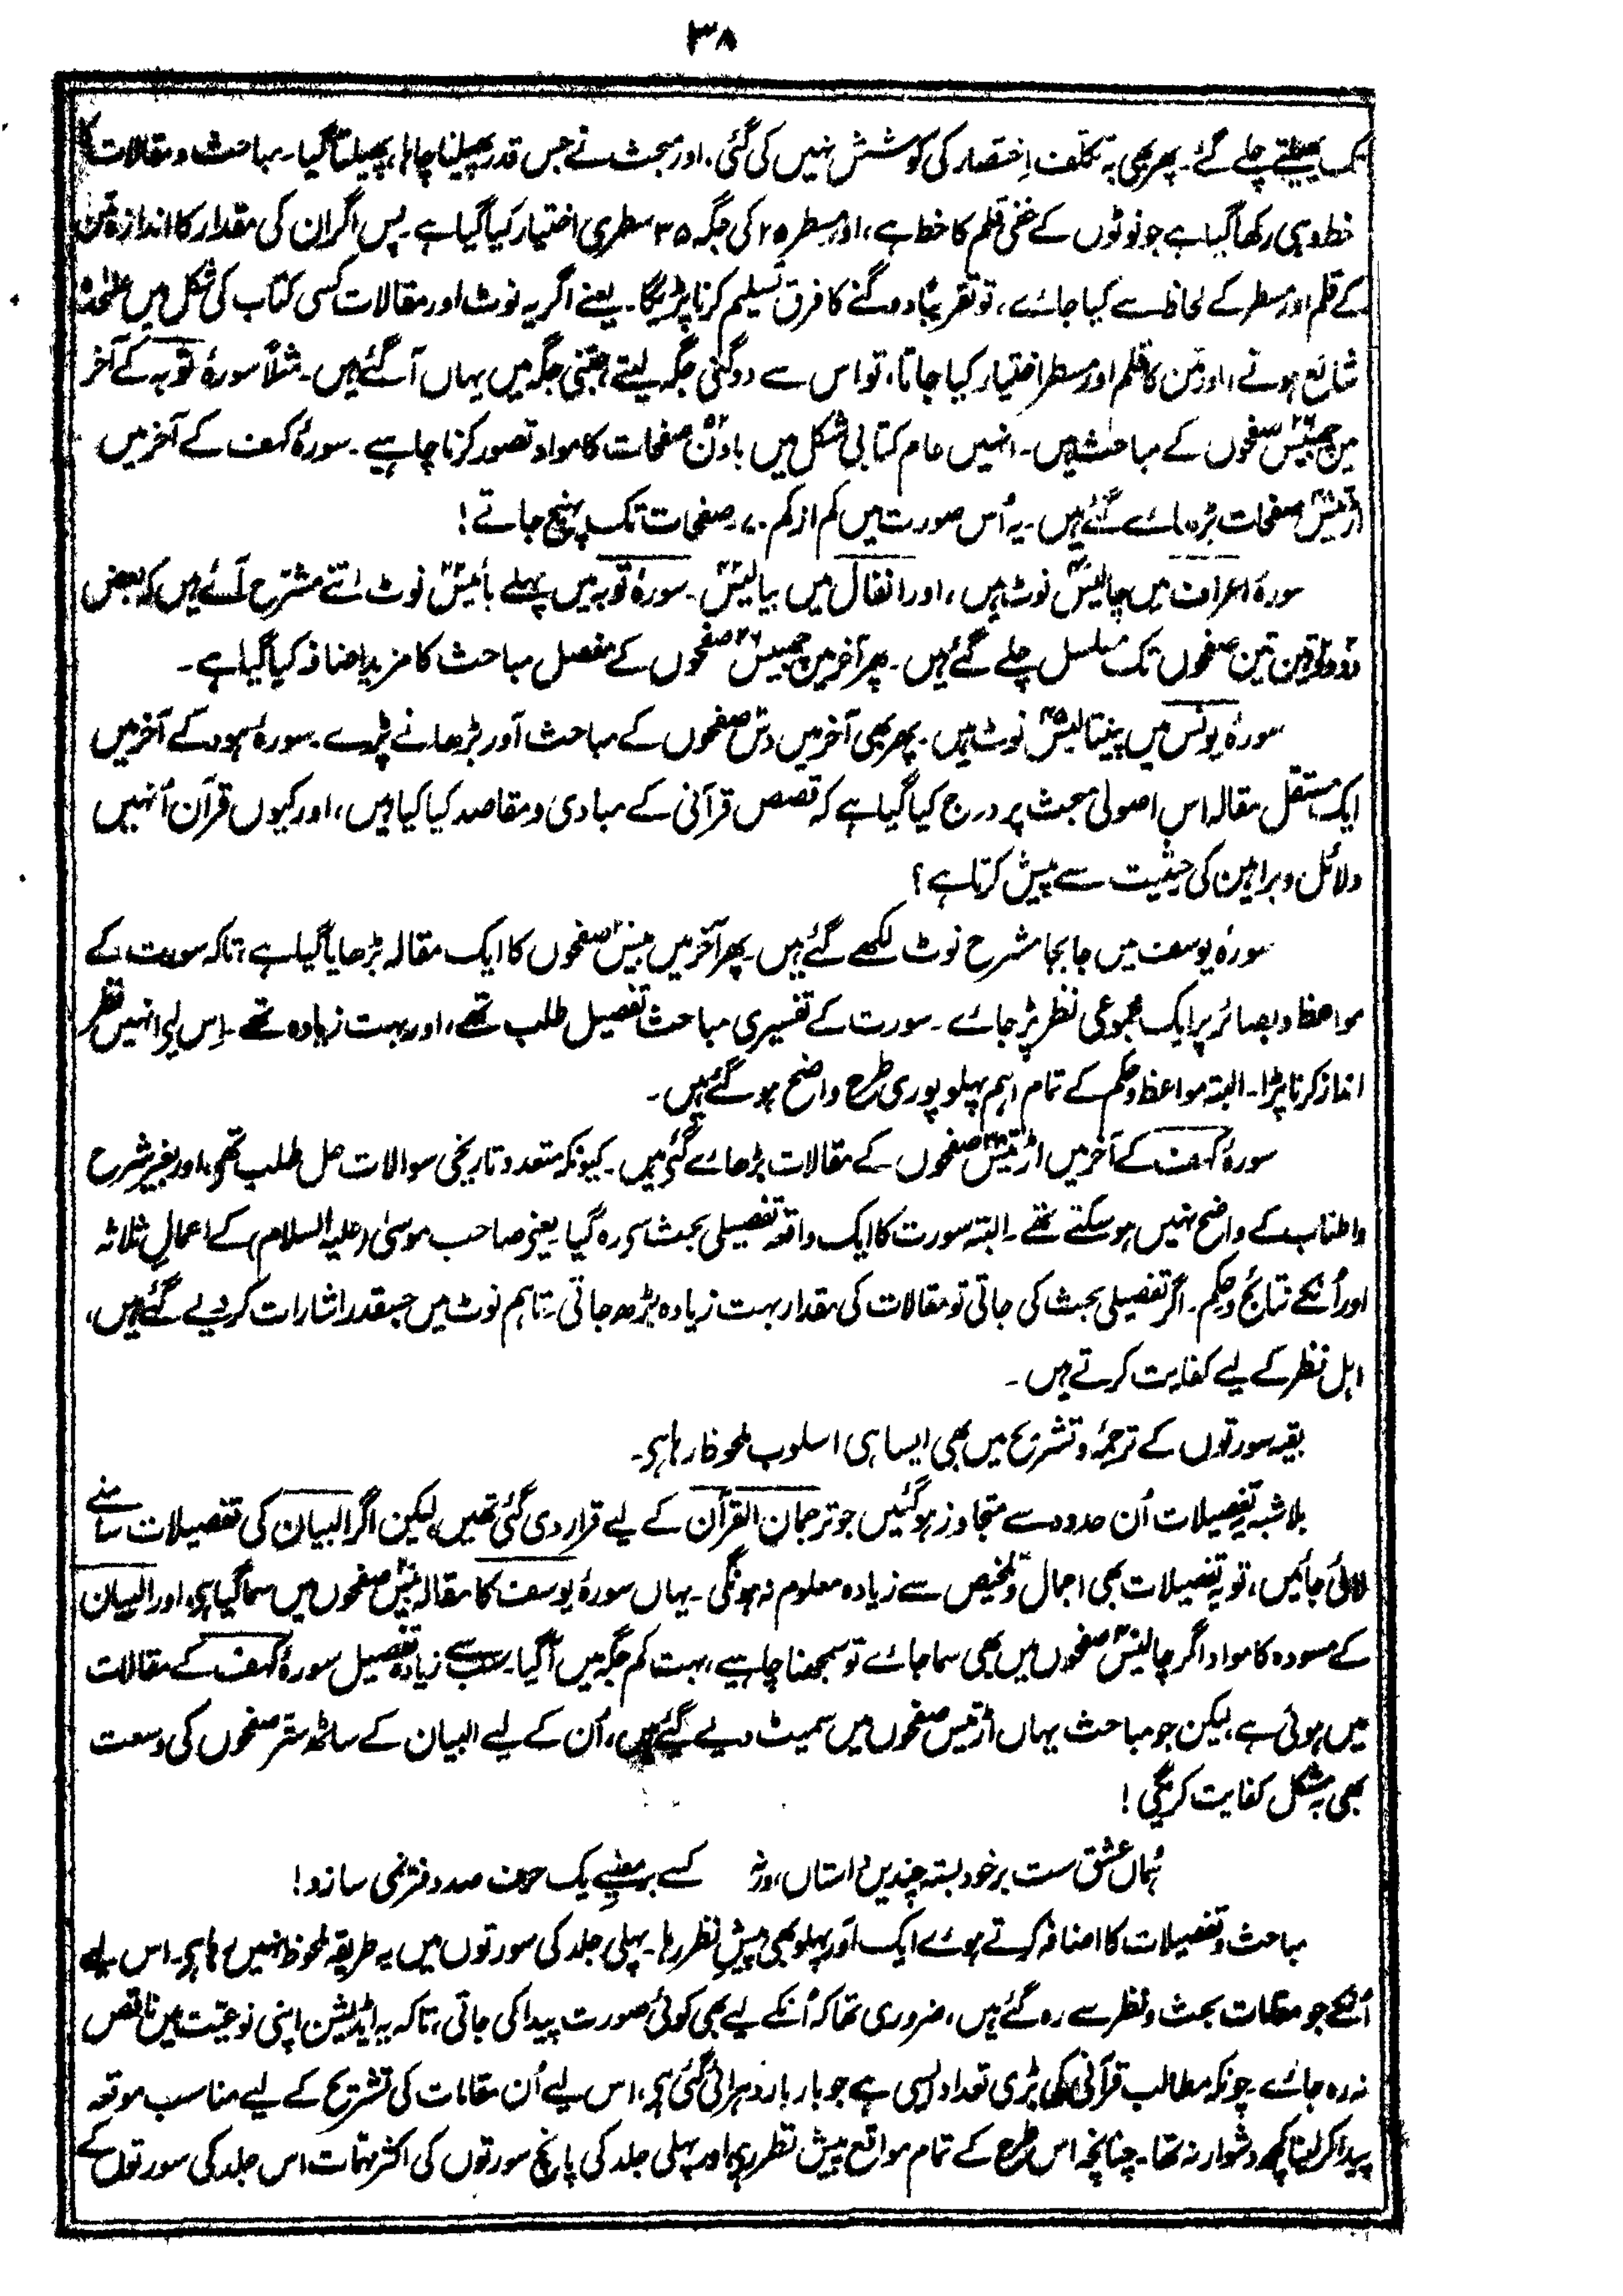 ۳۸
تک پھیلتے چلے گئے۔ پھر بھی بہ تکلف اِختصار کی کوشش نہیں کی گئی۔ اور مبحث نے جس قدر پھیلنا چاہا، پھیلتا گیا۔ مباحث و مقالات کا
خط وہی رکھا گیا ہے جو نوٹوں کے خفی قلم کا خط ہے، اور مسطر ۲۵ کی جگہ ۳۵ سطری اختیار کیا گیا ہے۔ پس اگر ان کی مقدار کا اندازہ متن
کے قلم اور مسطر کے لحاظ سے کیا جائے، تو تقریباً دوگنے کا فرق تسلیم کرنا پڑیگا۔ یعنے اگر یہ نوٹ اور مقالات کسی کتاب کی شکل میں علٰحدہ
شائع ہوتے، اور متن کا قلم اور مسطر اختیار کیا جاتا، تو اس سے دوگنی جگہ لیتے جتنی جگہ میں یہاں آ گئے ہیں۔ مثلاً سورۂ توبہ کے آخر
میں چھبیس ۲۶ صفحوں کے مباحث ہیں۔ انہیں عام کتابی شکل میں باون ۵۲ صفحات کا مواد تصور کرنا چاہیے۔ سورۂ کہف کے آخر میں
اڑتیس ۳۸ صفحات بڑھائے گئے ہیں۔ یہ اُس صورت میں کم از کم ۷۰۔ صفحات تک پہنچ جاتے!
سورۂ اعراف میں چالیس ۴۰ نوٹ ہیں، اور انفال میں بیالیس ۴۲۔ سورۂ توبہ میں پہلے بائیس ۲۲ نوٹ اتنے مشرح آئے ہیں کہ بعض
دو دو تین تین صفحوں تک مسلسل چلے گئے ہیں۔ پھر آخر میں چھبیس ۲۶ صفحوں کے مفصل مباحث کا مزید اضافہ کیا گیا ہے۔
سورۂ یونس میں پینتالیس ۴۵ نوٹ ہیں۔ پھر بھی آخر میں دس صفحوں کے مباحث اَور بڑھانے پڑے۔ سورۂ ہود کے آخر میں
ایک مستقل مقالہ اس اصولی مبحث پر درج کیا گیا ہے کہ قصص قرآنی کے مبادی و مقاصد کیا کیا ہیں، اور کیوں قرآن اُنہیں
دلائل و براہین کی حیثیت سے پیش کرتا ہے؟
سورۂ یوسف میں جابجا مشرح نوٹ لکھے گئے ہیں۔ پھر آخر میں بیس ۲۰ صفحوں کا ایک مقالہ بڑھایا گیا ہے، تاکہ سورت کے
مواعظ و بصائر پر ایک مجموعی نظر پڑ جائے۔ سورت کے تفسیری مباحث تفصیل طلب تھے، اور بہت زیادہ تھے۔ اِس لیے انہیں نظر
انداز کرنا پڑا۔ البتہ مواعظ و حکم کے تمام اہم پہلو پوری طرح واضح ہو گئے ہیں۔
سورۂ کہف کے آخر میں اڑتیس ۳۸ صفحوں کے مقالات بڑھائے گئے ہیں۔ کیونکہ متعدد تاریخی سوالات حل طلب تھے، اور بغیر شرح
و اطناب کے واضح نہیں ہو سکتے تھے۔ البتہ سورت کا ایک واقعہ تفصیلی بحث سے رہ گیا۔ یعنی صاحب موسیٰ (علیہ السلام) کے اعمالِ ثلاثہ
اور اُنکے نتائج و حکم۔ اگر تفصیلی بحث کی جاتی تو مقالات کی مقدار بہت زیادہ بڑھ جاتی۔ تاہم نوٹ میں جسقدر اشارات کر دیے گئے ہیں،
اہل نظر کے لیے کفایت کرتے ہیں۔
بقیہ سورتوں کے ترجمۂ و تشریح میں بھی ایسا ہی اسلوب ملحوظ رہا ہے۔
بلاشبہ یہ تفصیلات اُن حدود سے متجاوز ہو گئیں جو ترجمان القرآن کے لیے قرار دی گئی تھیں، لیکن اگر البیان کی تفصیلات سامنے
لائی جائیں، تو یہ تفصیلات بھی اجمال و تلخیص سے زیادہ معلوم نہ ہونگی۔ یہاں سورۂ یوسف کا مقالہ بیس ۲۰ صفحوں میں سما گیا ہے، اور البیان
کے مسودہ کا مواد اگر چالیس ۴۰ صفحوں میں بھی سما جائے تو سمجھنا چاہیے، بہت کم جگہ میں آ گیا۔ سب سے زیادہ تفصیل سورۂ کہف کے مقالات
میں ہوئی ہے، لیکن جو مباحث یہاں اڑتیس صفحوں میں سمیٹ دیے گئے ہیں، اُن کے لیے البیان کے ساٹھ ستر صفحوں کی وسعت
بھی بہ مشکل کفایت کریگی!
ہماں عشق ست بر خود بستہ چندیں داستاں، ورنہ کسے بر معنیِ یک حرف صد دفتر نمی سازد!
مباحث و تفصیلات کا اضافہ کرتے ہوے ایک اَور پہلو بھی پیشِ نظر رہا۔ پہلی جلد کی سورتوں میں یہ طریقہ ملحوظ نہیں رہا ہے۔ اس لیے
اُنکے جو مقامات بحث و نظر سے رہ گئے ہیں، ضروری تھا کہ اُنکے لیے بھی کوئی صورت پیدا کی جاتی، تاکہ یہ اڈیشن اپنی نوعیّت میں ناقص
نہ رہ جائے۔ چونکہ مطالب قرآنی کی بڑی تعداد ایسی ہے جو بار بار دہرائی گئی ہے، اس لیے اُن مقامات کی تشریح کے لیے مناسب موقعہ
پیدا کر لینا کچھ دشوار نہ تھا۔ چنانچہ اس طرح کے تمام مواقع پیش نظر رہے، اور پہلی جلد کی پانچ سورتوں کی اکثر مہمّات اس جلد کی سورتوں کے